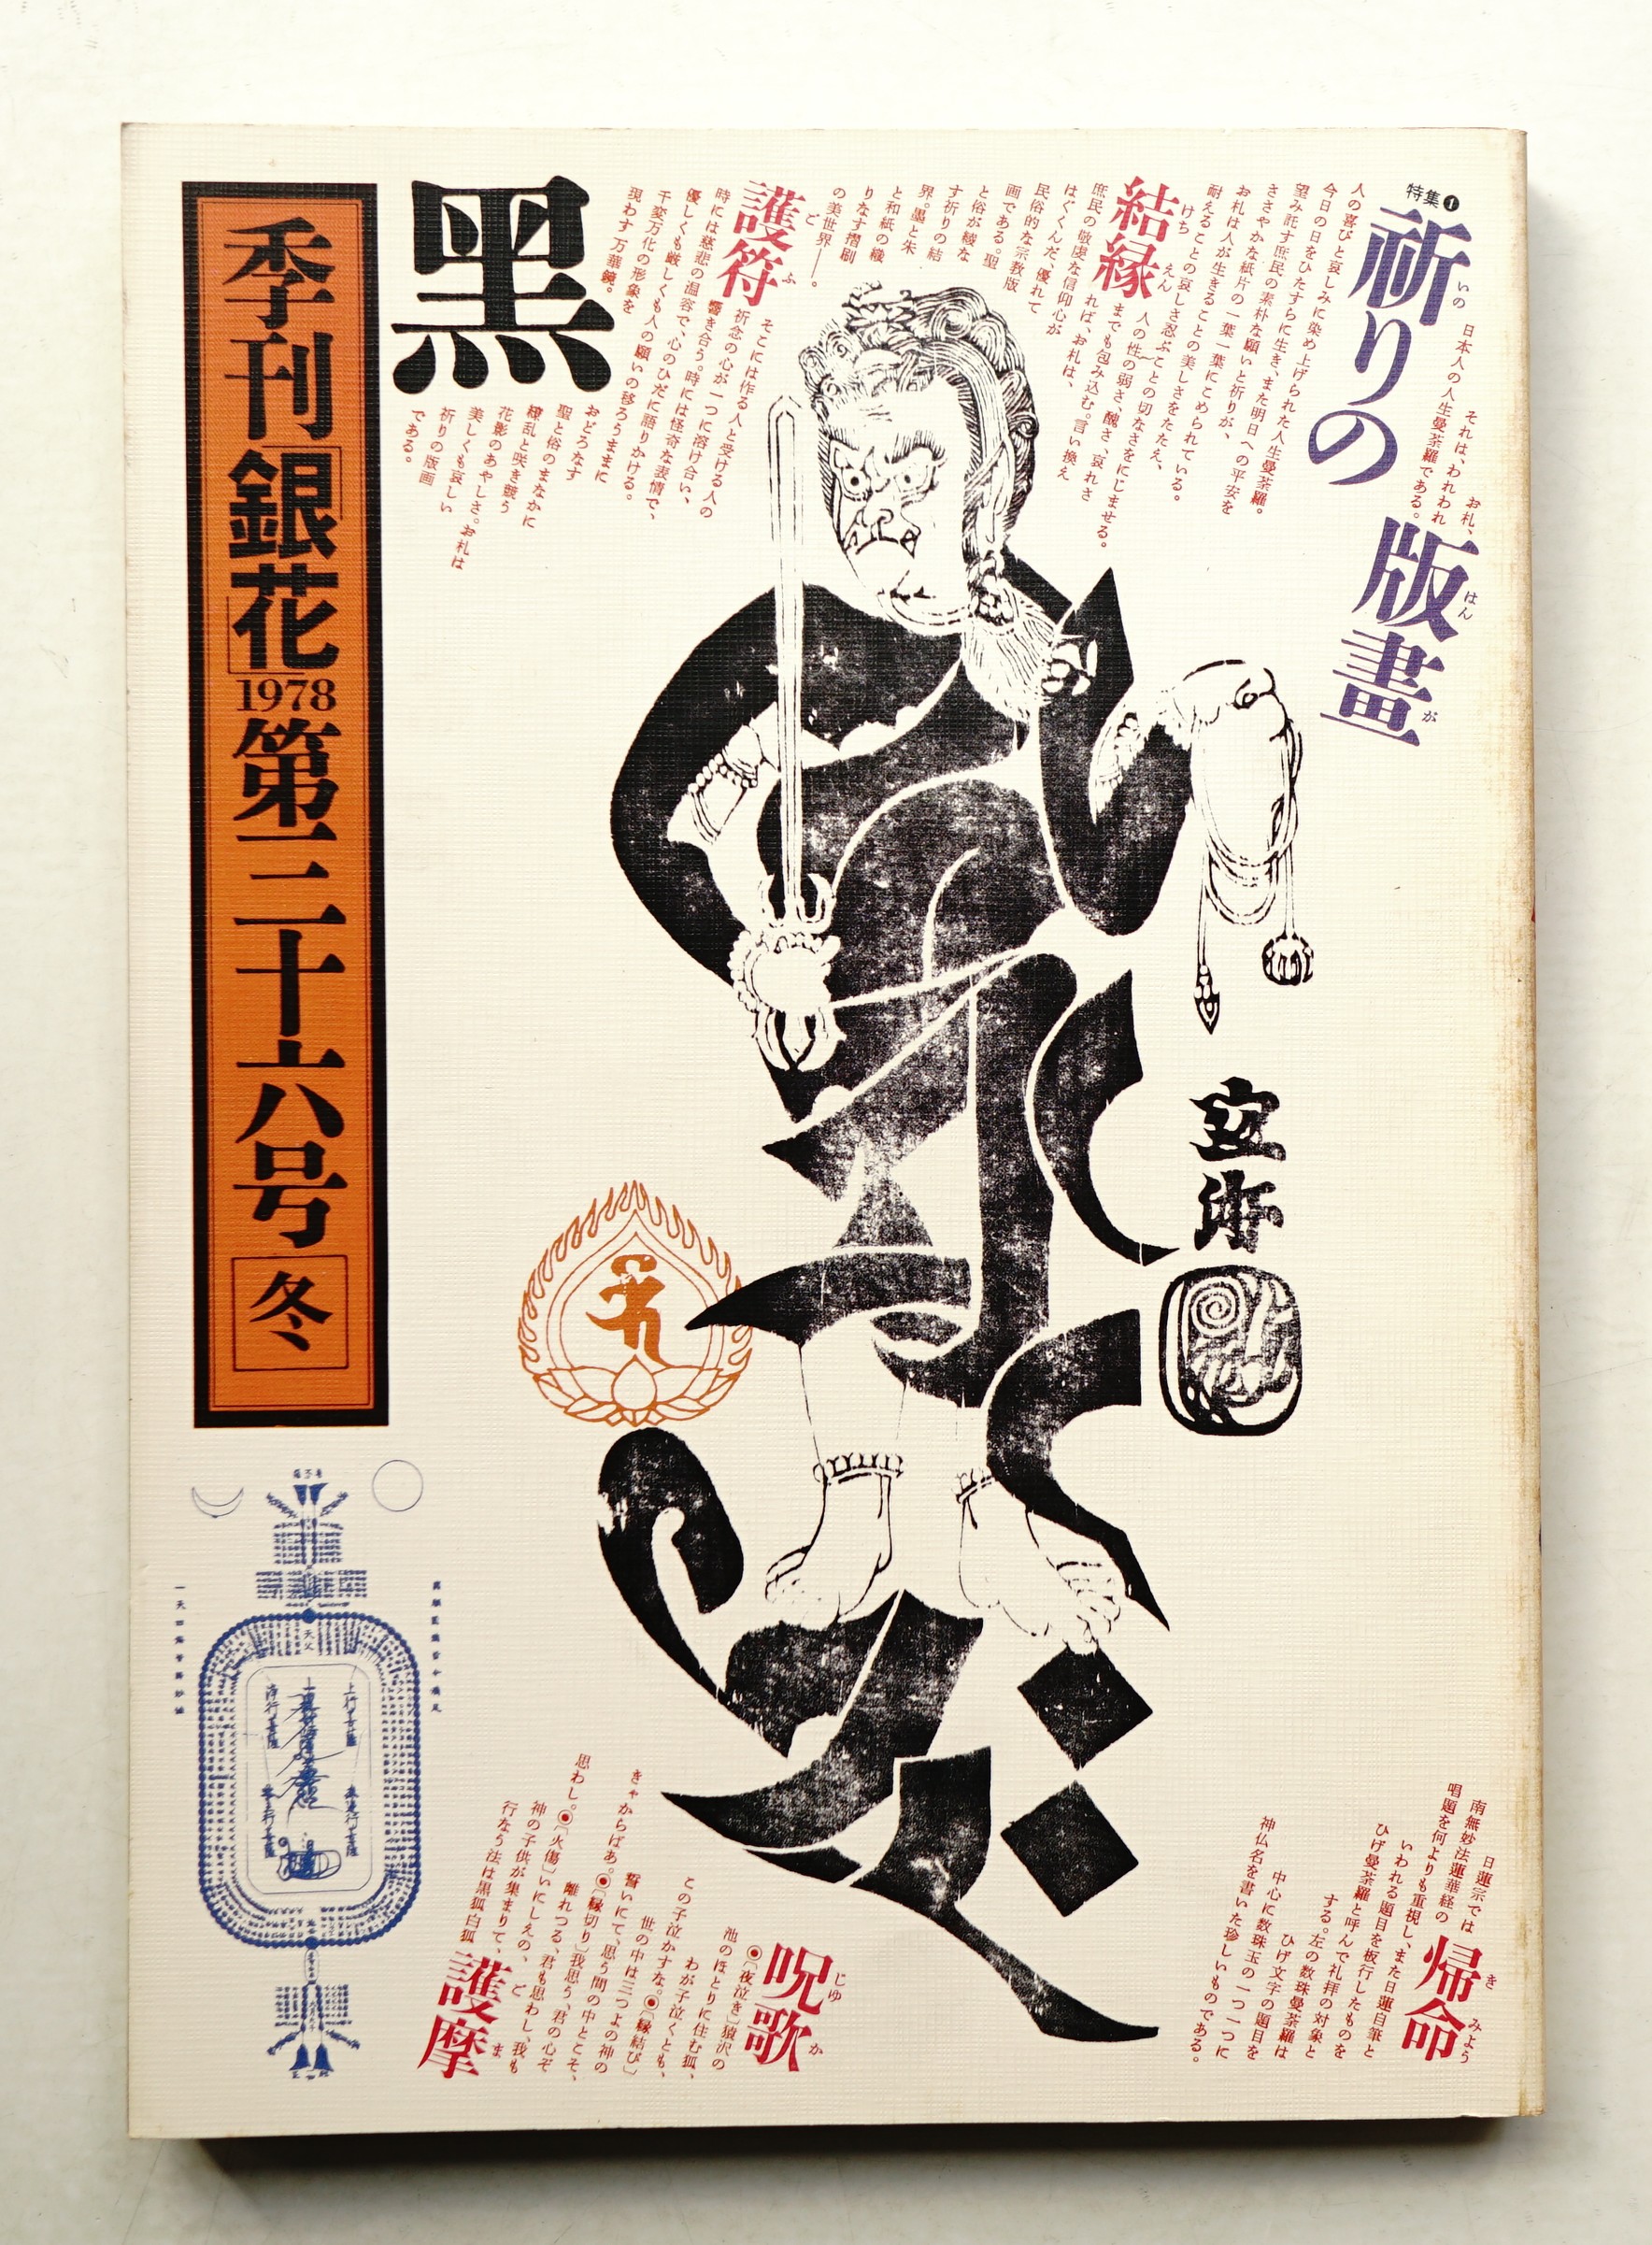 特集❶
祈りの
いの
版畫
はん
が
お札、
それは、われわれ
日本人の人生曼荼羅である。
人の喜びと哀しみに染め上げられた人生曼荼羅。
今日の日をひたすらに生き、また明日への平安を
望み託す庶民の素朴な願いと祈りが、
ささやかな紙片の一葉一葉にこめられている。
お札は人が生きることの美しさをたたえ、
耐えることの哀しさ忍ぶことの切なさをにじませる。
結縁
けち
えん
人の性の弱さ、醜さ、哀れさ
までも包み込む。言い換え
れば、お札は、
庶民の敬虔な信仰心が
はぐくんだ、優れて
民俗的な宗教版
画である。聖
と俗が綾な
す祈りの結
界。墨と朱
と和紙の織
りなす摺刷
の美世界——。
護符
ご
ふ
そこには作る人と受ける人の
祈念の心が一つに溶け合い、
響き合う。時には怪奇な表情で、
時には慈悲の温容で、心のひだに語りかける。
優しくも厳しくも人の願いの移ろうままに
千変万化の形象を
現わす万華鏡。
おどろなす
聖と俗のまなかに
繚乱と咲き競う
花影のあやしさ。お札は
美しくも哀しい
祈りの版画
である。
黑
季刊「銀花」1978第三十六号
冬
帰命
き
みよう
日蓮宗では
南無妙法蓮華経の
唱題を何よりも重視し、また日蓮自筆と
いわれる題目を板行したものを
ひげ曼荼羅と呼んで礼拝の対象と
する。左の数珠曼荼羅は
ひげ文字の題目を
中心に数珠玉の一つ一つに
神仏名を書いた珍しいものである。
呪歌
じゆ
か
◉〔夜泣き〕猿沢の
池のほとりに住む狐、
わが子泣くとも、
この子泣かすな。◉〔縁結び〕
世の中は三つよの神の
誓いにて、思う間の中とこそ、
きゃからばあ。◉〔縁切り〕我思う、君の心ぞ
離れつる、君も思わし、我も
思わし。◉〔火傷〕いにしえの、
神の子供が集まりて、
行なう法は黒狐白狐
護摩
ご
ま